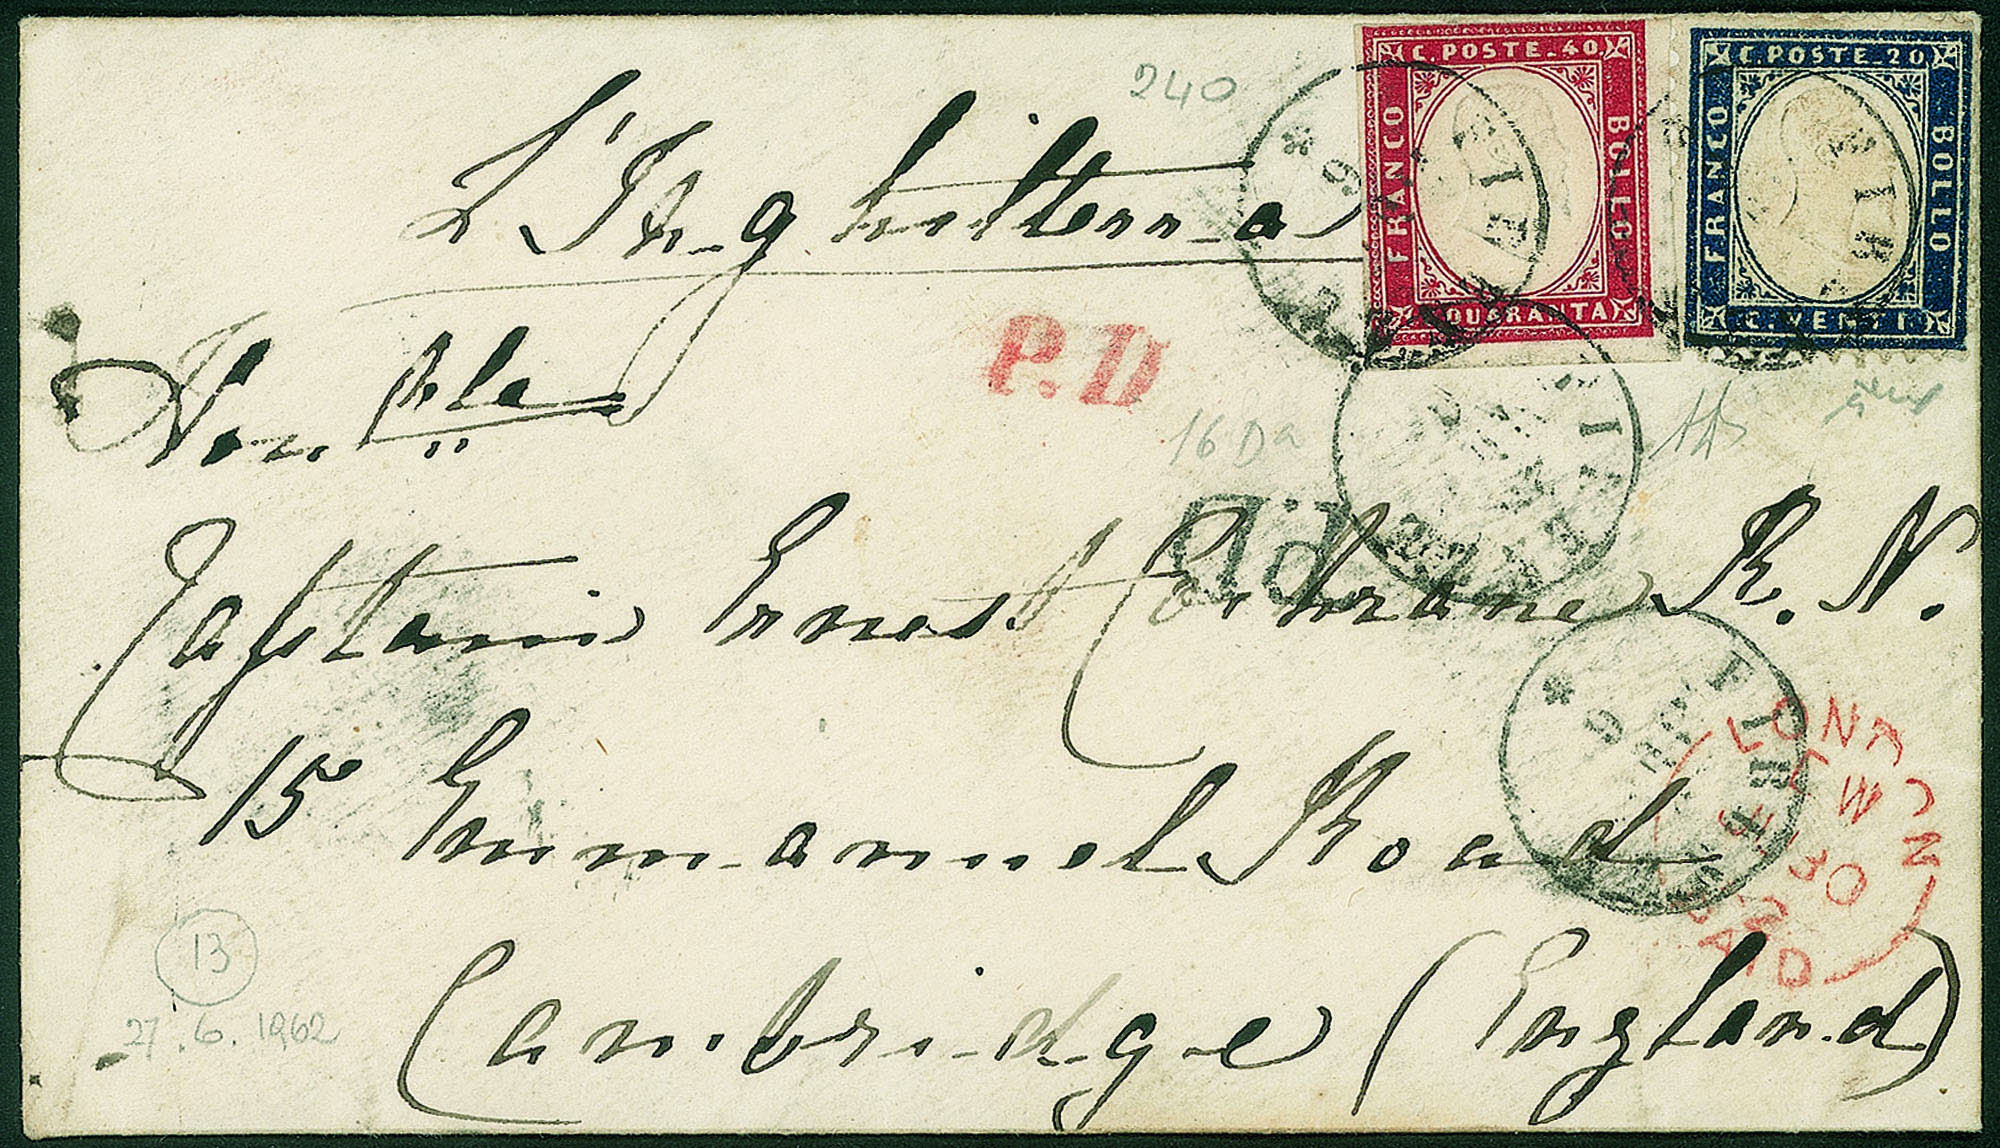 240
C. POSTE. 40.
FRANCO
BOLLO
QUARANTA
C. POSTE 20
FRANCO
BOLLO
C. VENTI
L'Inghilterra
P.D
16 Da
P.D.
Captain Ernest Cochrane R. N.
15 Emmanuel Road
Cambridge (England)
FIRENZE
LONDON
EW
30
PAID
13
27.6.1962